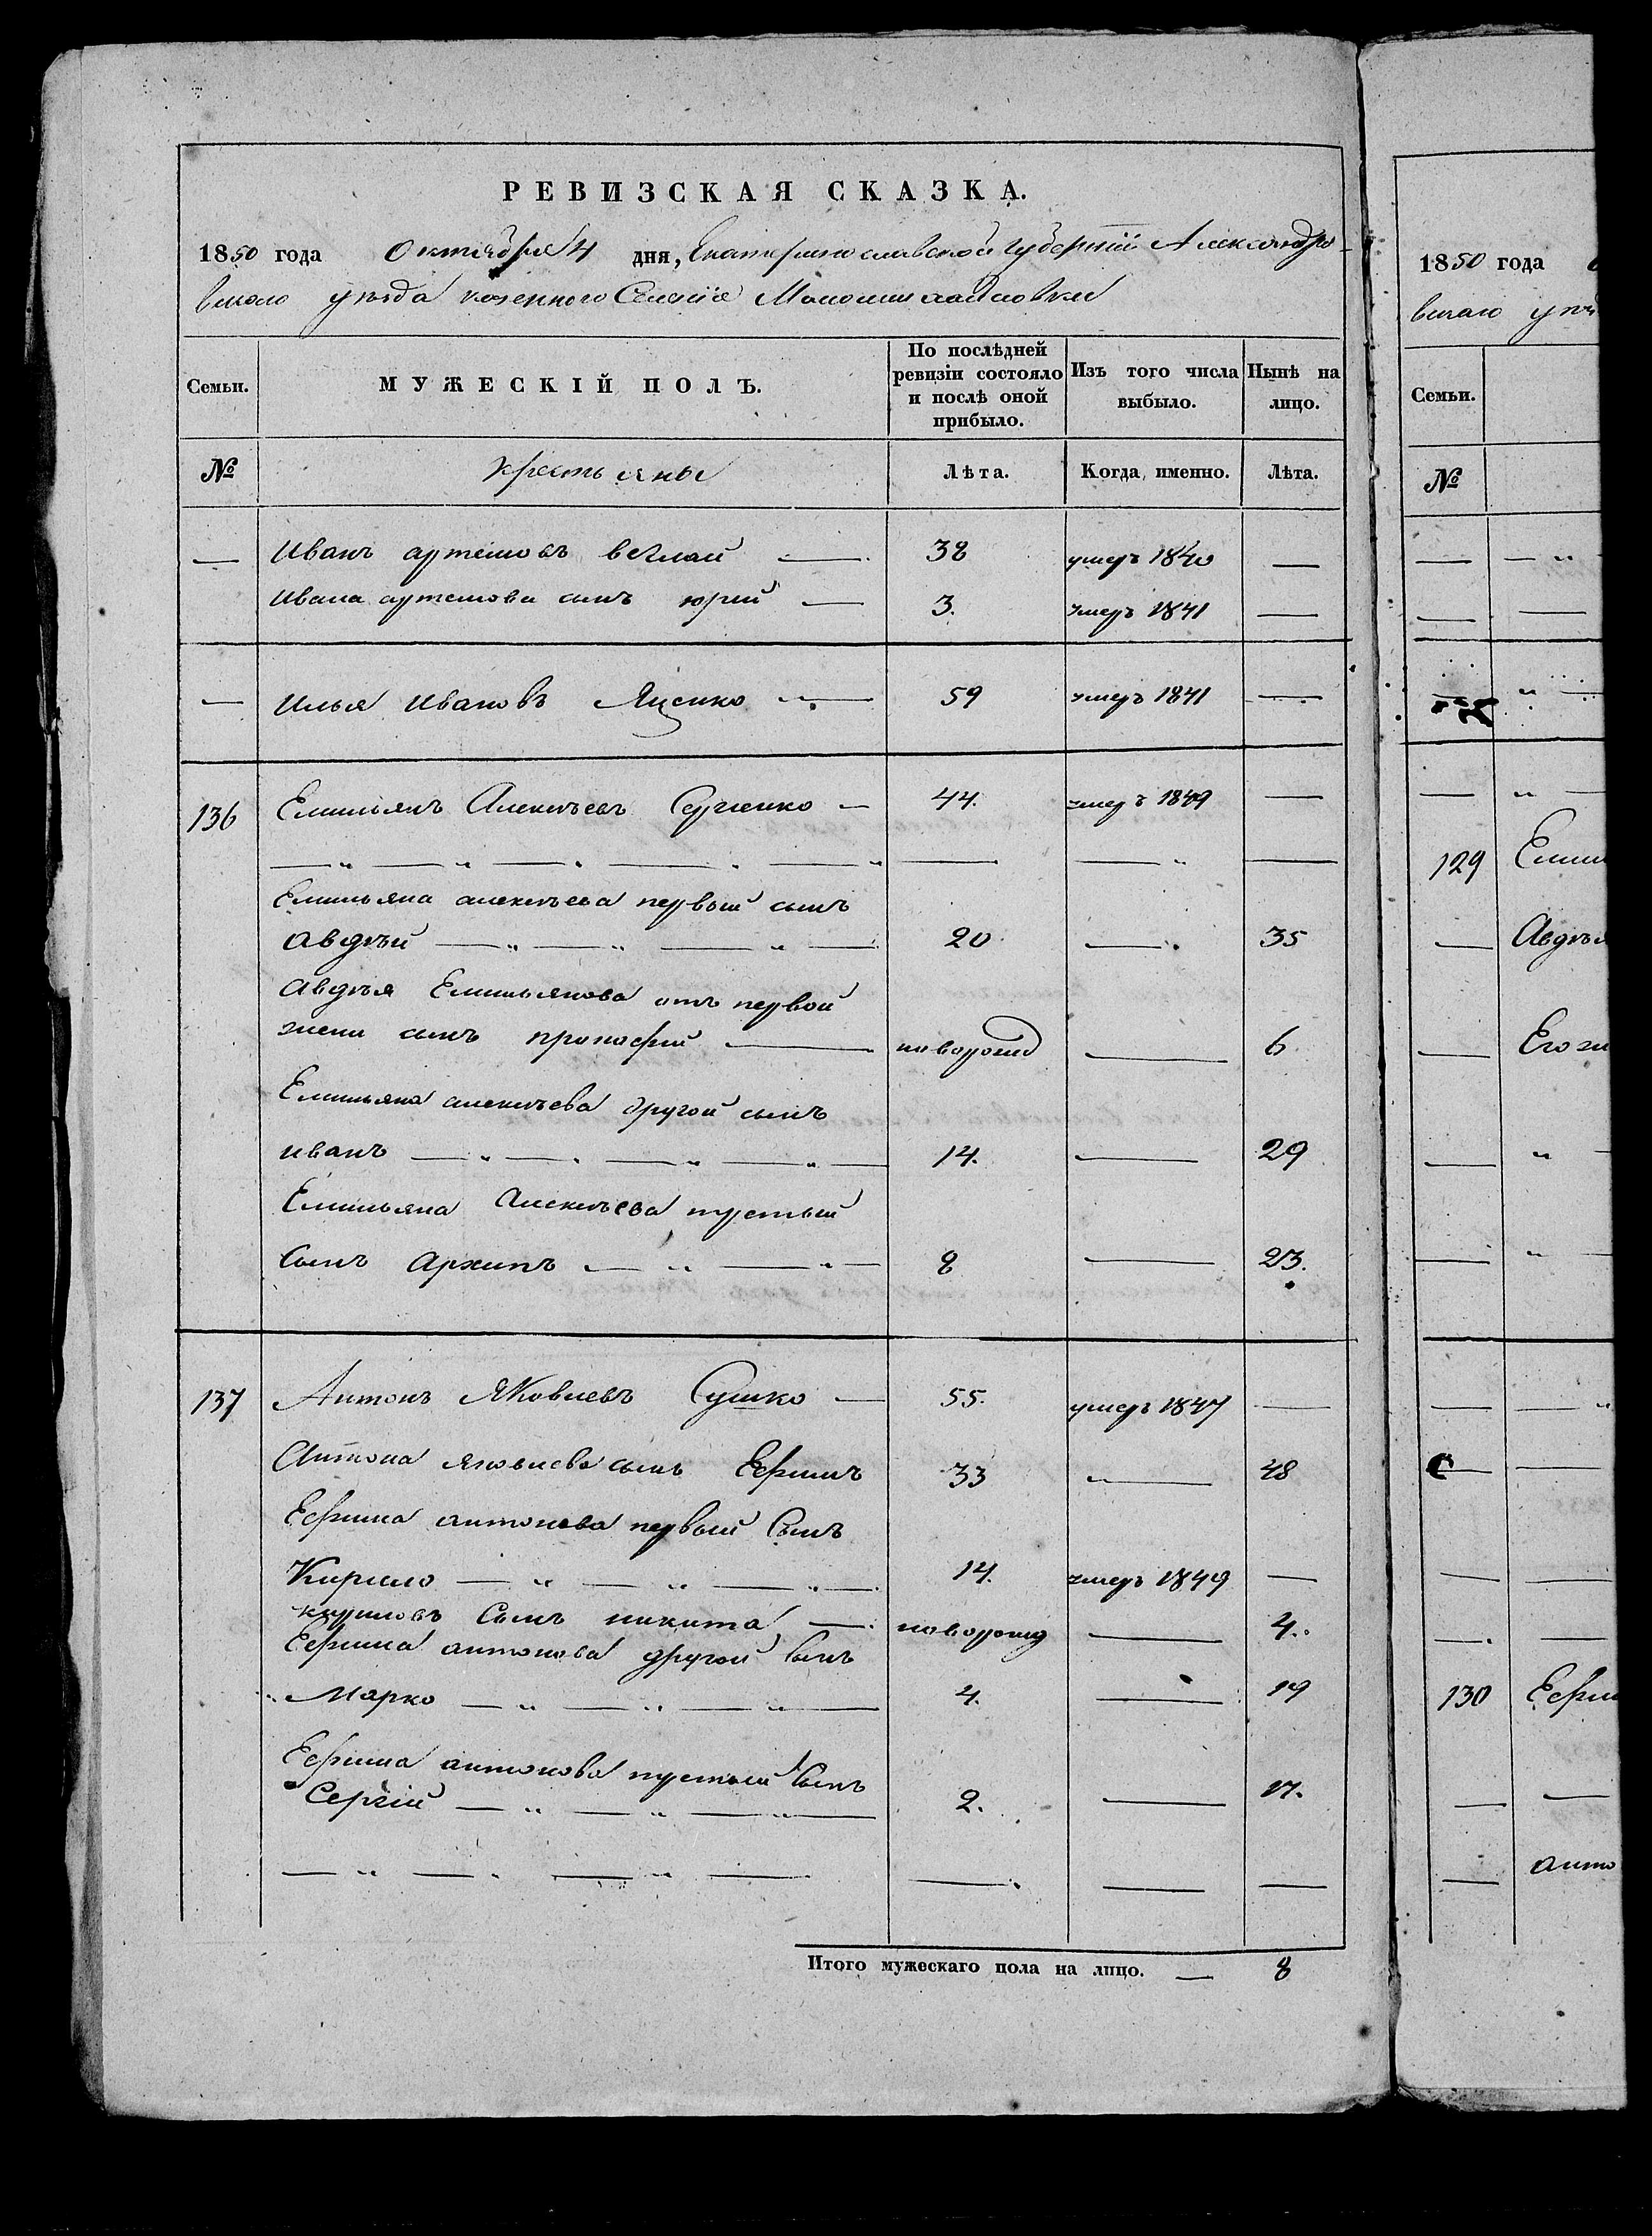 РЕВИЗСКАЯ СКАЗКА.
1850 года Октября 4 дня, Екатеринославской Губерніи Александро-
вскаго уѣзда казенного Селенія Маломихайловки
Семьи. МУЖЕСКІЙ ПОЛЪ. По послѣдней ревизіи состояло и послѣ оной прибыло. Изъ того числа выбыло. Нынѣ на лицо.
№ крестьяны Лѣта. Когда именно. Лѣта.
— Иванъ артемовъ — 38 умеръ 1840 —
Ивана артемова сынъ юрій — 3. умеръ 1841 —
— илья ивановъ Яценко — 59 умеръ 1841 —
136 Емильянъ Алексѣевъ Сергіенко — 44. умеръ 1849 —
Емильяна алексѣева первый сынъ
авдѣй — 20 — 35
авдѣя Емильянова отъ первой
жени сынъ прокофій — новорожд — 6
Емильяна алексѣева другой сынъ
иванъ — 14. — 29
Емильяна Алексѣева третьій
сынъ архипъ — 8 — 23.
137 Антонъ Яковлевъ Сушко — 55. умеръ 1847 —
Антона яковлева сынъ Ефимъ 33 — 48
Ефима антонова первый Сынъ
Кирило — 14. умеръ 1849 —
кириловъ Сынъ никита — новорожд — 4.
Ефима антонова другой сынъ
Марко — 4. — 19
Ефима антонова третьій Сынъ
Сергій — 2. — 17.
Итого мужескаго пола на лицо. — 8
1850 года
вскаго уѣз
Семьи.
№
129 Емил
— Авдѣя
— Его же
130 Ефим
— анто